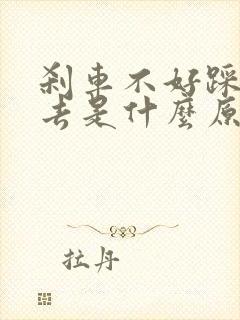 刹車不好踩
去是什麼原
拉丹